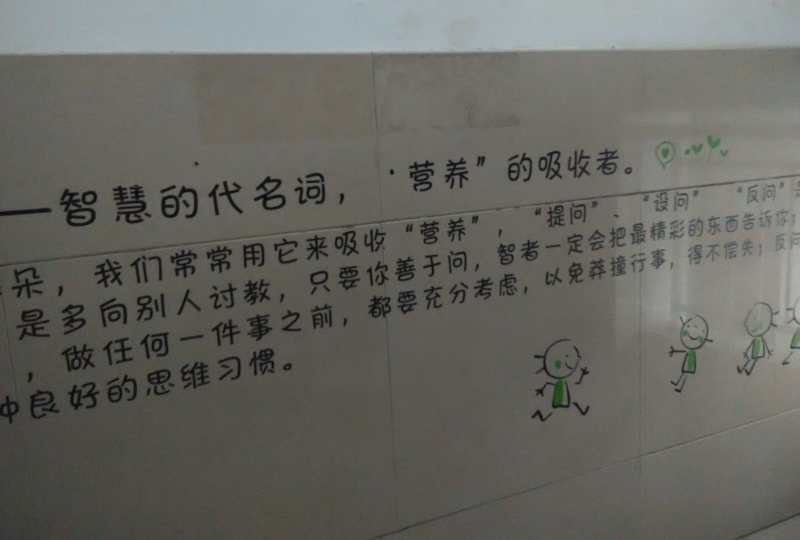 ——智慧的代名词，“营养”的吸收者。
朵，我们常常用它来吸收“营养”，“提问”、“设问”“反问”
是多向别人讨教，只要你善于问，智者一定会把最精彩的东西告诉你；
，做任何一件事之前，都要充分考虑，以免莽撞行事，得不偿失；反问
种良好的思维习惯。